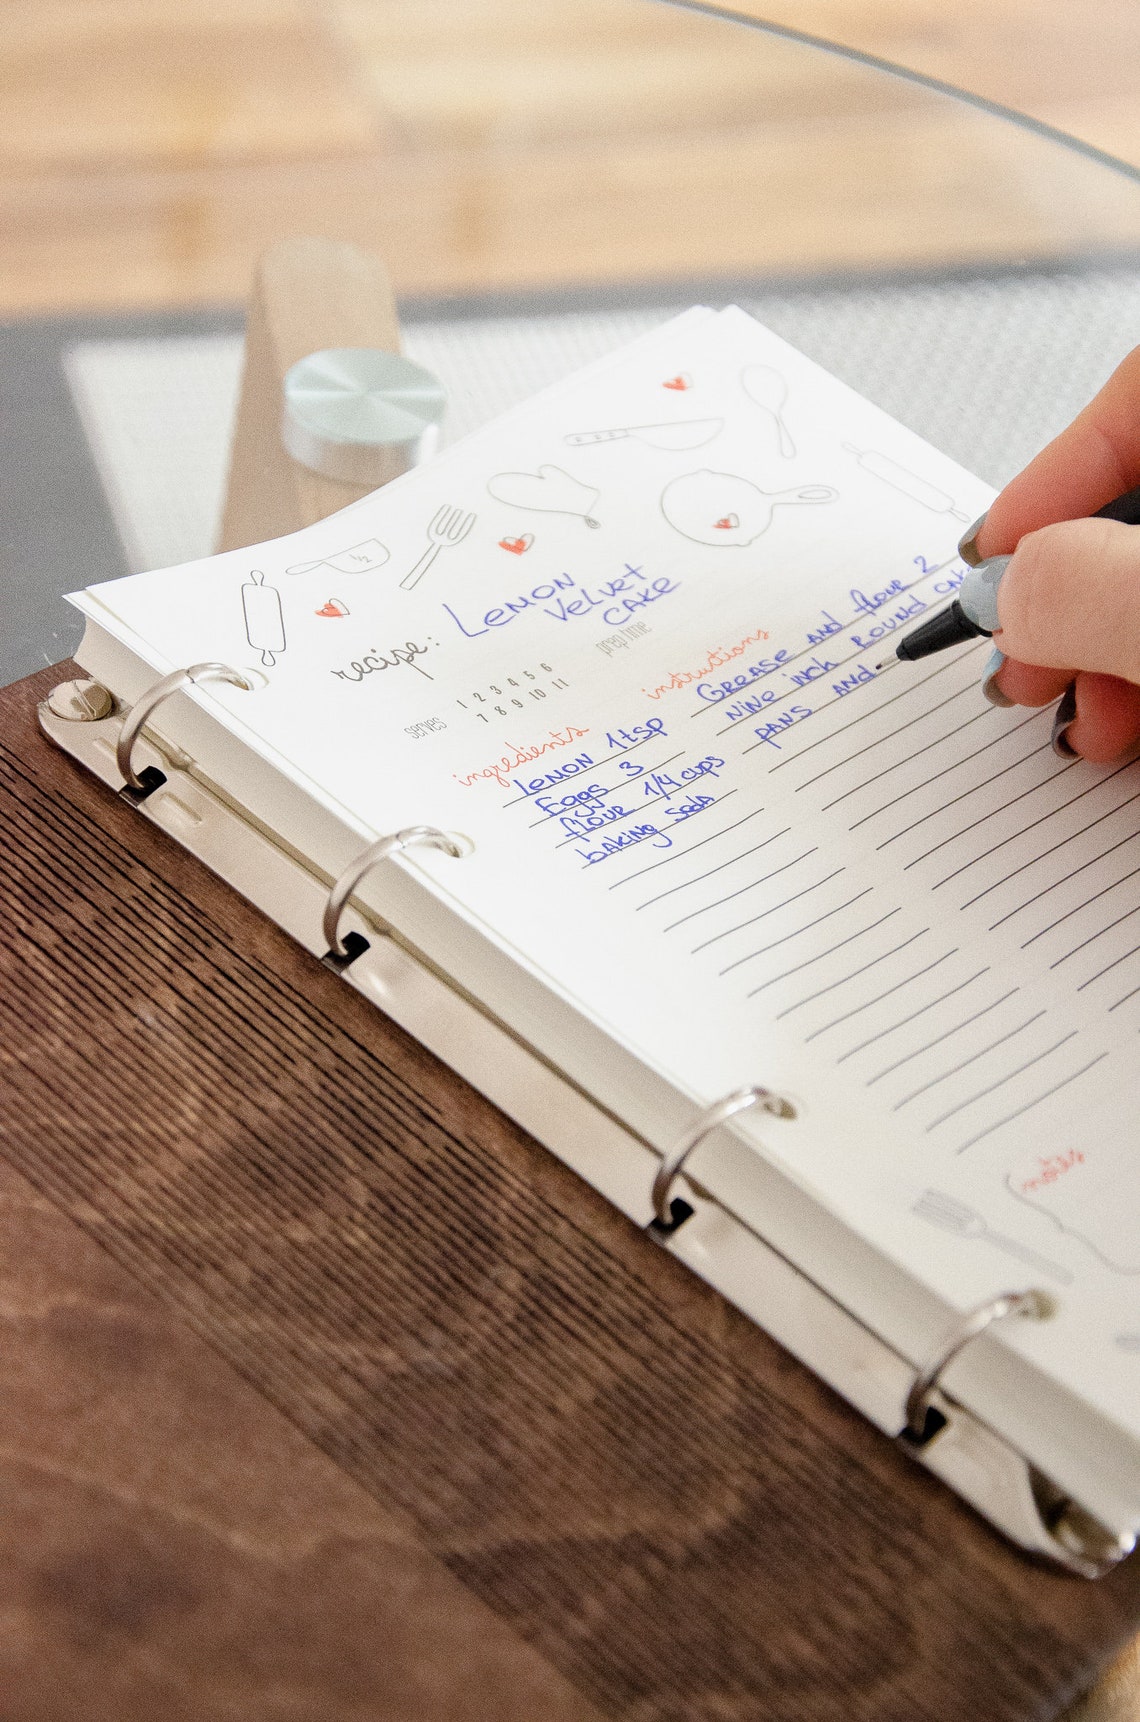 1/2
recipe:
LEMON
VELVET
CAKE
serves
1 2 3 4 5 6
7 8 9 10 11
prep time
ingredients
LEMON 1 tsp
Eggs 3
flour 1/4 cups
bAKiNg SodA
instructions
GREASE AND flour 2
NiNE iNCh ROUND
pANS AND
notes